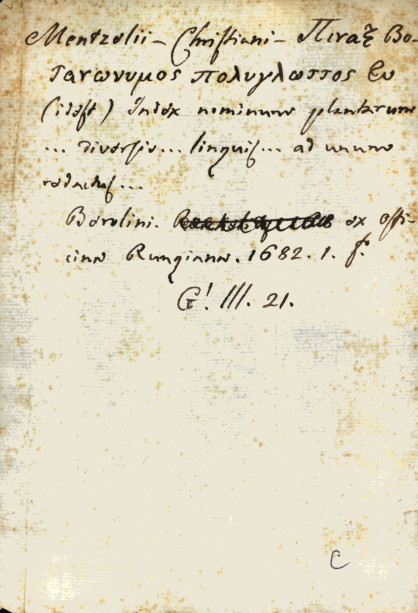 Mentzelii - Christiani - Πιναξ Βο-
τανωνυμος πολυγλωττος
(id est) Index nominum plantarum
... diversis... linguis... ad unum
redactus...
Berolini. ex offi-
cina Rungiana. 1682. 1. f.
G! III. 21.
C